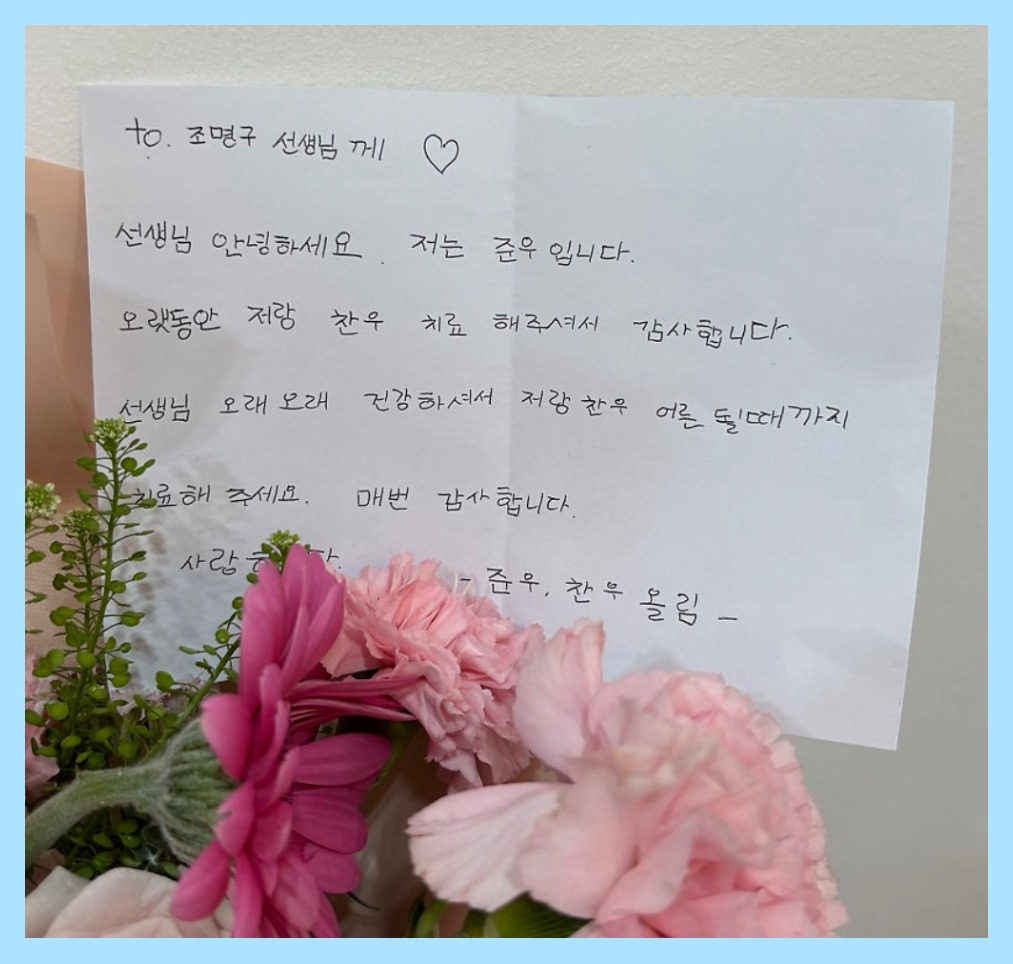 to. 조명구 선생님 께 ♡
선생님 안녕하세요. 저는 준우입니다.
오랫동안 저랑 찬우 치료 해주셔서 감사합니다.
선생님 오래오래 건강하셔서 저랑 찬우 어른 될때까지
치료해 주세요. 매번 감사합니다.
- 준우, 찬우 올림 -